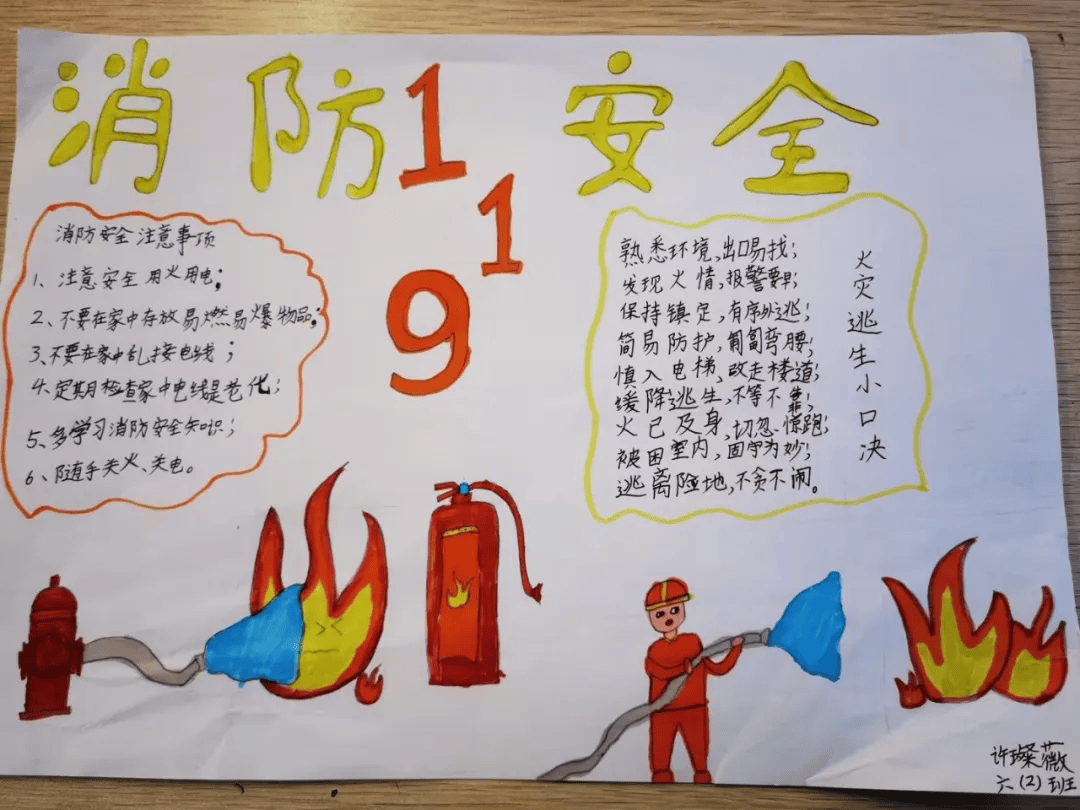 消防安全
119
消防安全注意事项
1、注意安全用火用电;
2、不要在家中存放易燃易爆物品;
3、不要在家中乱接电线;
4、定期检查家中电线是老化;
5、多学习消防安全知识;
6、随手关火、关电。
火灾逃生小口决
熟悉环境,出口易找;
发现火情,报警要早;
保持镇定,有序外逃;
简易防护,匍匐弯腰;
慎入电梯,改走楼道;
缓降逃生,不等不靠;
火已及身,切忽惊跑;
被困室内,固守为妙;
逃离险地,不贪不闹。
许璨薇
六(2)班